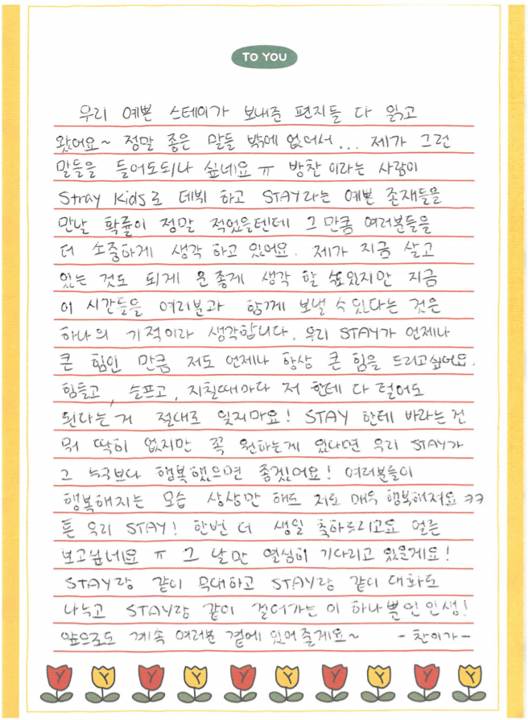 TO YOU
우리 예쁜 스테이가 보내준 편지들 다 읽고
왔어요~ 정말 좋은 말들 밖에 없어서... 제가 그런
말들을 들어도되나 싶네요 ㅠ 방찬 이라는 사람이
Stray Kids로 데뷔 하고 STAY라는 예쁜 존재들을
만날 확률이 정말 적었을텐데 그 만큼 여러분들을
더 소중하게 생각 하고 있어요. 제가 지금 살고
있는 것도 되게 운 좋게 생각 할 수있지만 지금
이 시간들을 여러분과 함께 보낼 수 있다는 것은
하나의 기적이라 생각합니다. 우리 STAY가 언제나
큰 힘인 만큼 저도 언제나 항상 큰 힘을 드리고싶어요.
힘들고, 슬프고, 지칠때마다 저 한테 다 털어도
된다는 거 절대로 잊지마요! STAY 한테 바라는 건
뭐 딱히 없지만 꼭 원하는게 있다면 우리 STAY가
그 누구보다 행복했으면 좋겠어요! 여러분들이
행복해지는 모습 상상만 해도 저도 매우 행복해져요 ㅋㅋ
튼 우리 STAY! 한번 더 생일 축하드리고요 얼른
보고싶네요 ㅠ 그 날만 열심히 기다리고 있을게요!
STAY랑 같이 무대하고 STAY랑 같이 대화도
나누고 STAY랑 같이 걸어가는 이 하나뿐인 인생!
앞으로도 계속 여러분 곁에 있어줄게요~ - 찬이가 -